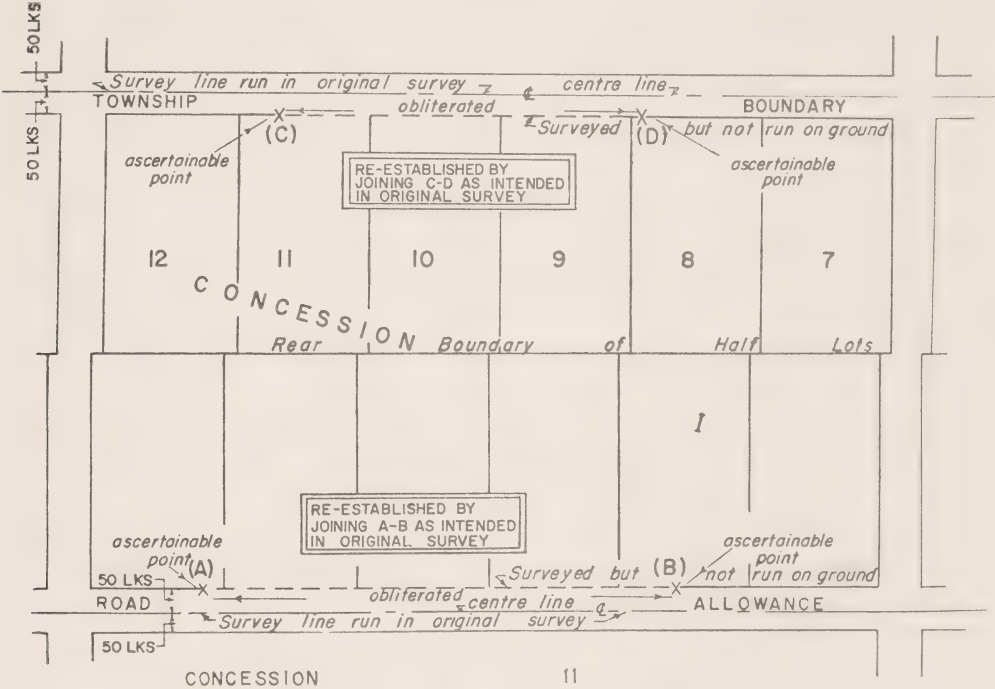 50 LKS
Survey line run in original survey ℄ centre line
TOWNSHIP obliterated BOUNDARY
50 LKS
(C) Surveyed (D) but not run on ground
ascertainable point
ascertainable point
RE-ESTABLISHED BY
JOINING C-D AS INTENDED
IN ORIGINAL SURVEY
12 11 10 9 8 7
CONCESSION
Rear Boundary of Half Lots
I
RE-ESTABLISHED BY
JOINING A-B AS INTENDED
IN ORIGINAL SURVEY
ascertainable
point (A)
ascertainable
point
50 LKS
Surveyed but (B) not run on ground
ROAD obliterated centre line ℄ ALLOWANCE
Survey line run in original survey
50 LKS
CONCESSION 11